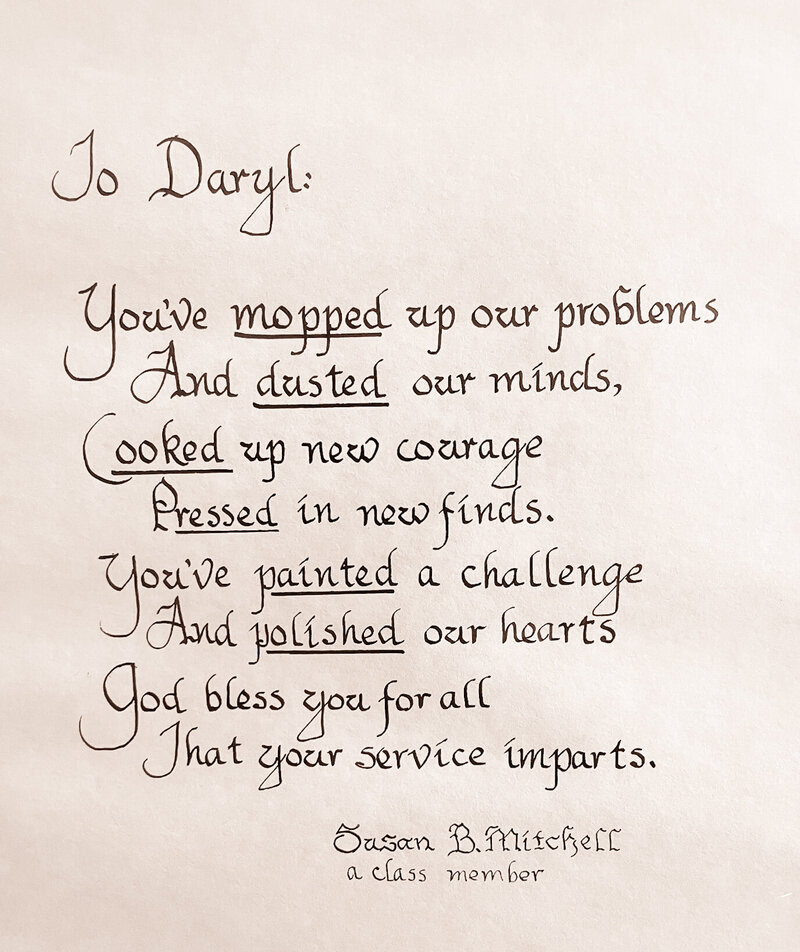 To Daryl:
You've mopped up our problems
And dusted our minds,
Cooked up new courage
Pressed in new finds.
You've painted a challenge
And polished our hearts
God bless you for all
That your service imparts.
Susan B. Mitchell
a class member